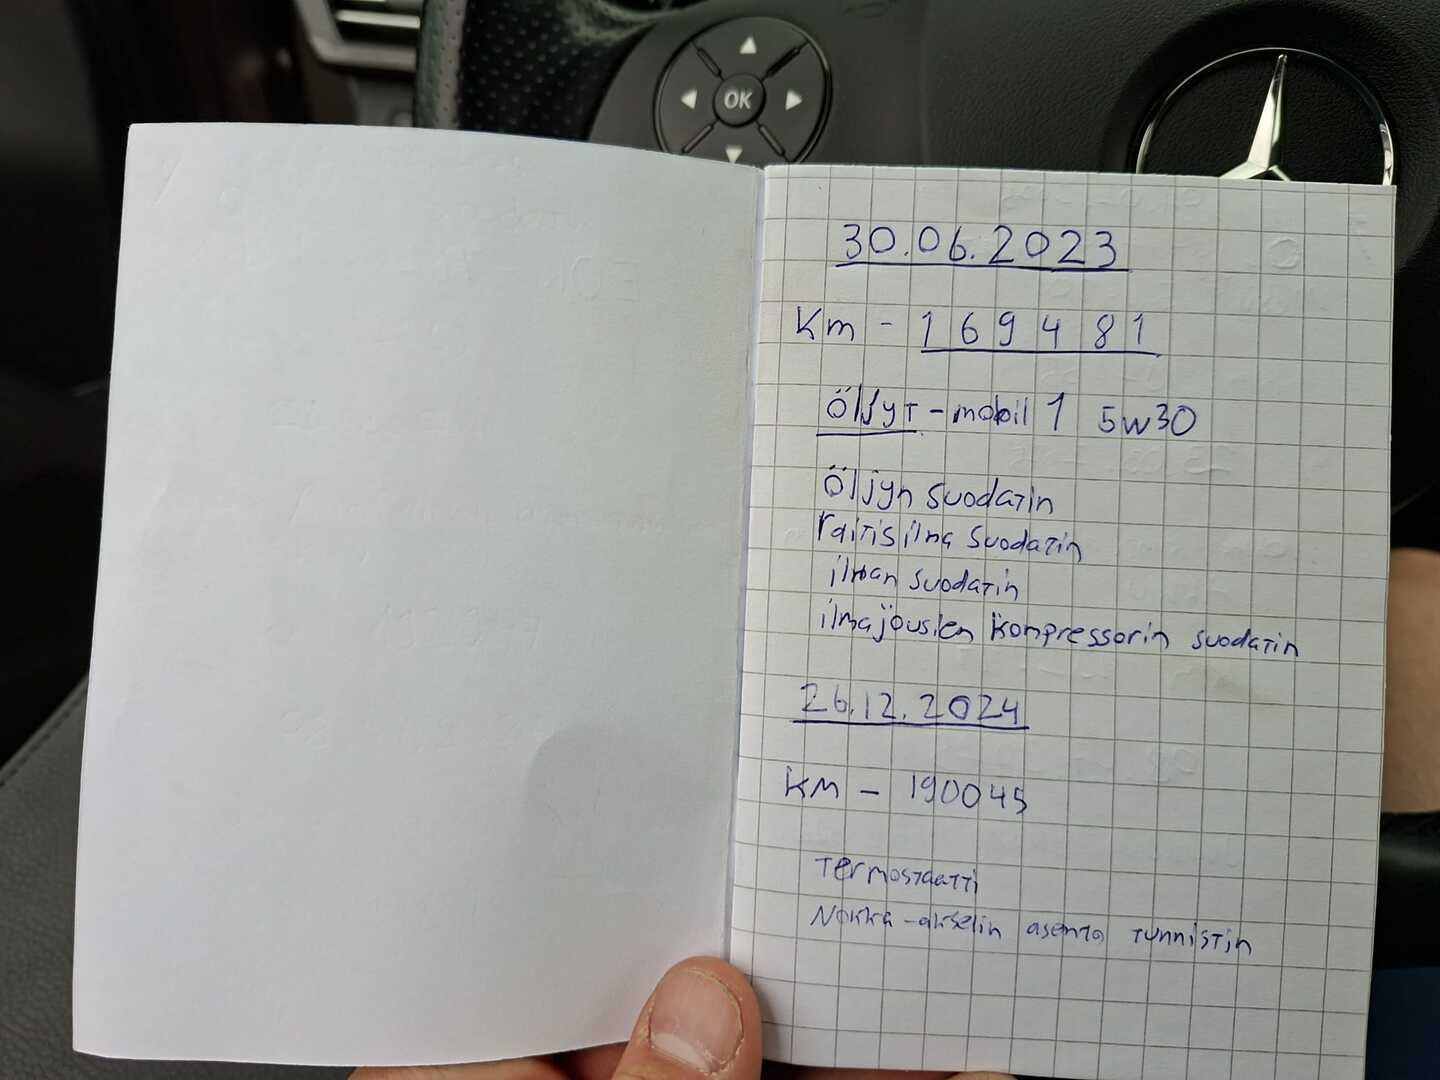 OK
30.06.2023
Km - 169481
Öljyt - mobil 1 5w30
Öljyn suodatin
raitisilma suodatin
ilman suodatin
ilmajousien kompressorin suodatin
26.12.2024
KM - 190045
Termostaatti
Nokka-akselin asento tunnistin